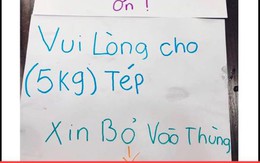 ơn !
Vui Lòng cho
(5kg) Tép
Xin Bỏ Vào Thùng